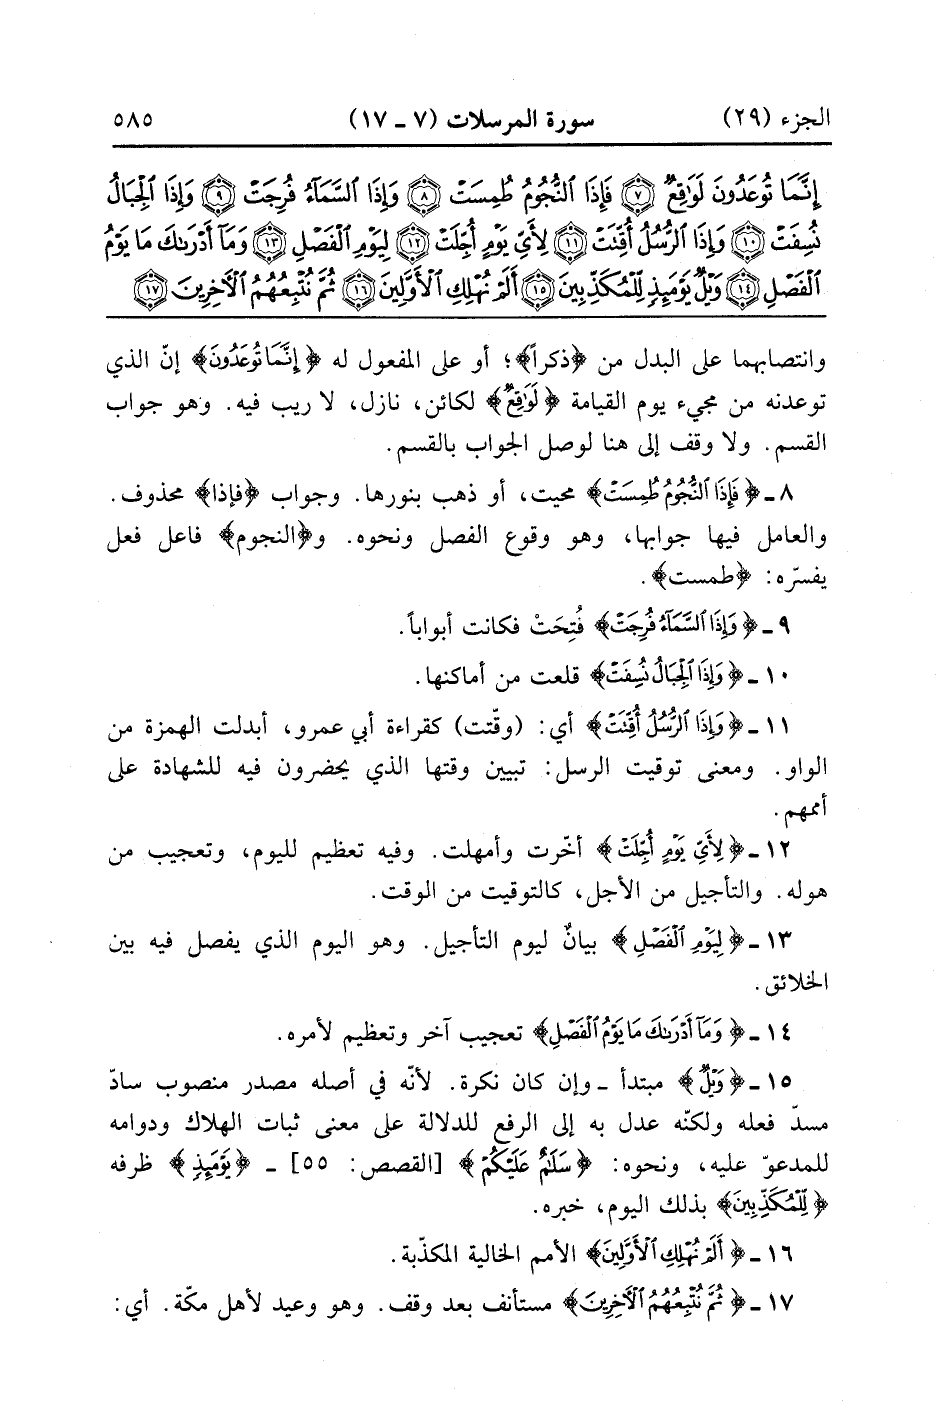 الجزء (٢٩)
سورة المرسلات (٧ ـ ١٧)
٥٨٥
إِنَّمَا تُوعَدُونَ لَوَٰقِعٌ ٧ فَإِذَا ٱلنُّجُومُ طُمِسَتْ ٨ وَإِذَا ٱلسَّمَآءُ فُرِجَتْ ٩ وَإِذَا ٱلْجِبَالُ
نُسِفَتْ ١٠ وَإِذَا ٱلرُّسُلُ أُقِّتَتْ ١١ لِأَيِّ يَوْمٍ أُجِّلَتْ ١٢ لِيَوْمِ ٱلْفَصْلِ ١٣ وَمَآ أَدْرَىٰكَ مَا يَوْمُ
ٱلْفَصْلِ ١٤ وَيْلٌ يَوْمَئِذٍ لِّلْمُكَذِّبِينَ ١٥ أَلَمْ نُهْلِكِ ٱلْأَوَّلِينَ ١٦ ثُمَّ نُتْبِعُهُمُ ٱلْآخِرِينَ ١٧
وانتصابهما على البدل من ﴿ذكراً﴾؛ أو على المفعول له ﴿إِنَّمَا تُوعَدُونَ﴾ إنّ الذي
توعدنه من مجيء يوم القيامة ﴿لَوَٰقِعٌ﴾ لكائن، نازل، لا ريب فيه. وهو جواب
القسم. ولا وقف إلى هنا لوصل الجواب بالقسم.
٨ ـ ﴿فَإِذَا ٱلنُّجُومُ طُمِسَتْ﴾ محيت، أو ذهب بنورها. وجواب ﴿فإذا﴾ محذوف.
والعامل فيها جوابها، وهو وقوع الفصل ونحوه. و﴿النجوم﴾ فاعل فعل
يفسّره: ﴿طمست﴾.
٩ ـ ﴿وَإِذَا ٱلسَّمَآءُ فُرِجَتْ﴾ فُتِحَتْ فكانت أبواباً.
١٠ ـ ﴿وَإِذَا ٱلْجِبَالُ نُسِفَتْ﴾ قلعت من أماكنها.
١١ ـ ﴿وَإِذَا ٱلرُّسُلُ أُقِّتَتْ﴾ أي: (وقّتت) كقراءة أبي عمرو، أبدلت الهمزة من
الواو. ومعنى توقيت الرسل: تبيين وقتها الذي يحضرون فيه للشهادة على
أممهم.
١٢ ـ ﴿لِأَيِّ يَوْمٍ أُجِّلَتْ﴾ أخّرت وأمهلت. وفيه تعظيم لليوم، وتعجيب من
هوله. والتأجيل من الأجل، كالتوقيت من الوقت.
١٣ ـ ﴿لِيَوْمِ ٱلْفَصْلِ﴾ بيانٌ ليوم التأجيل. وهو اليوم الذي يفصل فيه بين
الخلائق.
١٤ ـ ﴿وَمَآ أَدْرَىٰكَ مَا يَوْمُ ٱلْفَصْلِ﴾ تعجيب آخر وتعظيم لأمره.
١٥ ـ ﴿وَيْلٌ﴾ مبتدأ ـ وإن كان نكرة. لأنّه في أصله مصدر منصوب سادّ
مسدّ فعله ولكنّه عدل به إلى الرفع للدلالة على معنى ثبات الهلاك ودوامه
للمدعوّ عليه، ونحوه: ﴿سَلَٰمٌ عَلَيْكُمْ﴾ [القصص: ٥٥] ـ ﴿يَوْمَئِذٍ﴾ ظرفه
﴿لِّلْمُكَذِّبِينَ﴾ بذلك اليوم، خبره.
١٦ ـ ﴿أَلَمْ نُهْلِكِ ٱلْأَوَّلِينَ﴾ الأمم الخالية المكذّبة.
١٧ ـ ﴿ثُمَّ نُتْبِعُهُمُ ٱلْآخِرِينَ﴾ مستأنف بعد وقف. وهو وعيد لأهل مكّة. أي: